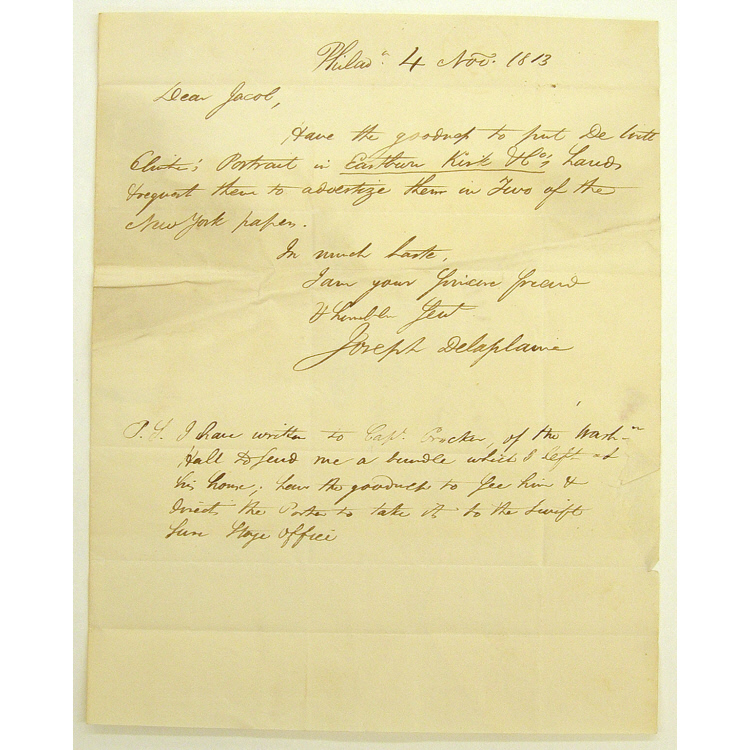 Philada. 4 Nov. 1813
Dear Jacob,
Have the goodness to put De Witt
Clinton's Portrait in Eastburn Kirk & Co's hands
& request them to advertize them in Two of the
New York papers.
In much haste,
I am your sincere friend
& humble Servt
Joseph Delaplaine
P.S. I have written to Capt. Crocker, of the Washn
Hall to send me a bundle which I left at
his house; have the goodness to see him &
direct the Porter to take it to the Swift
Sure Stage Office